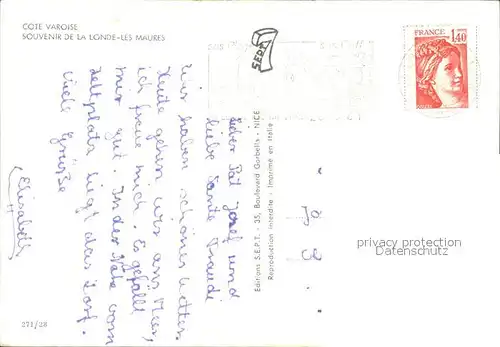 COTE VAROISE
SOUVENIR DE LA LONDE-LES MAURES
FRANCE
1,40
SEPT
Lieber Pat Josef und
liebe Tante Traudi
wir haben schönes Wetter.
Heute gehen wir ans Meer,
ich freue mich. Es gefällt
mir gut. In der Nähe vom
Zeltplatz liegt das Dorf.
Viele Grüße
Elisabeth
Editions S.E.P.T. - 35, Boulevard Gorbella - NICE
Reproduction interdite - Imprimé en Italie
privacy protection
Datenschutz
271/28